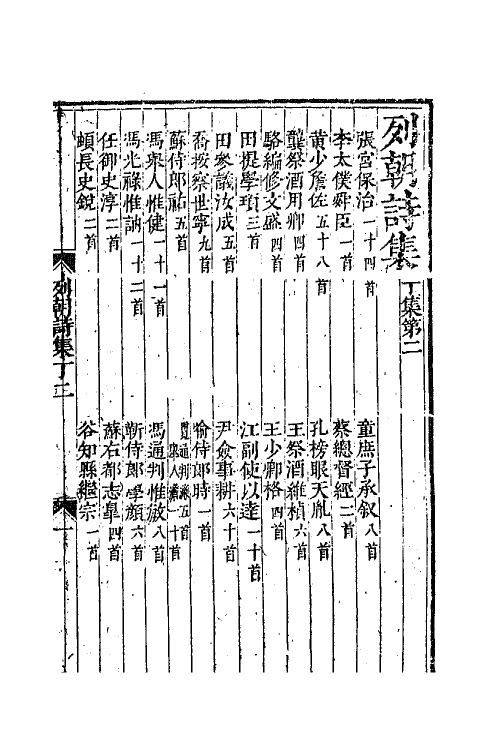 列朝詩集丁集第二
張宮保治一十四首　童庶子承叙八首
李太僕舜臣一首　蔡總督經二首
黄少詹佐五十八首　孔榜眼天胤八首
龔祭酒用卿四首　王祭酒維楨六首
駱編修文盛四首　王少卿格四首
田提學頊三首　江副使以達一十首
田參議汝成五首　尹僉事耕六十首
喬按察世寧九首　喻侍郎時一首
蘇侍郎祐五首
馮舉人惟健一十一首　馮通判惟敏八首
馮光祿惟訥一十二首　靳侍郎學顏六首
任御史淳二首　蘇右都志臯四首
頔長史銳二首　谷知縣繼宗一首
列朝詩集丁二　一